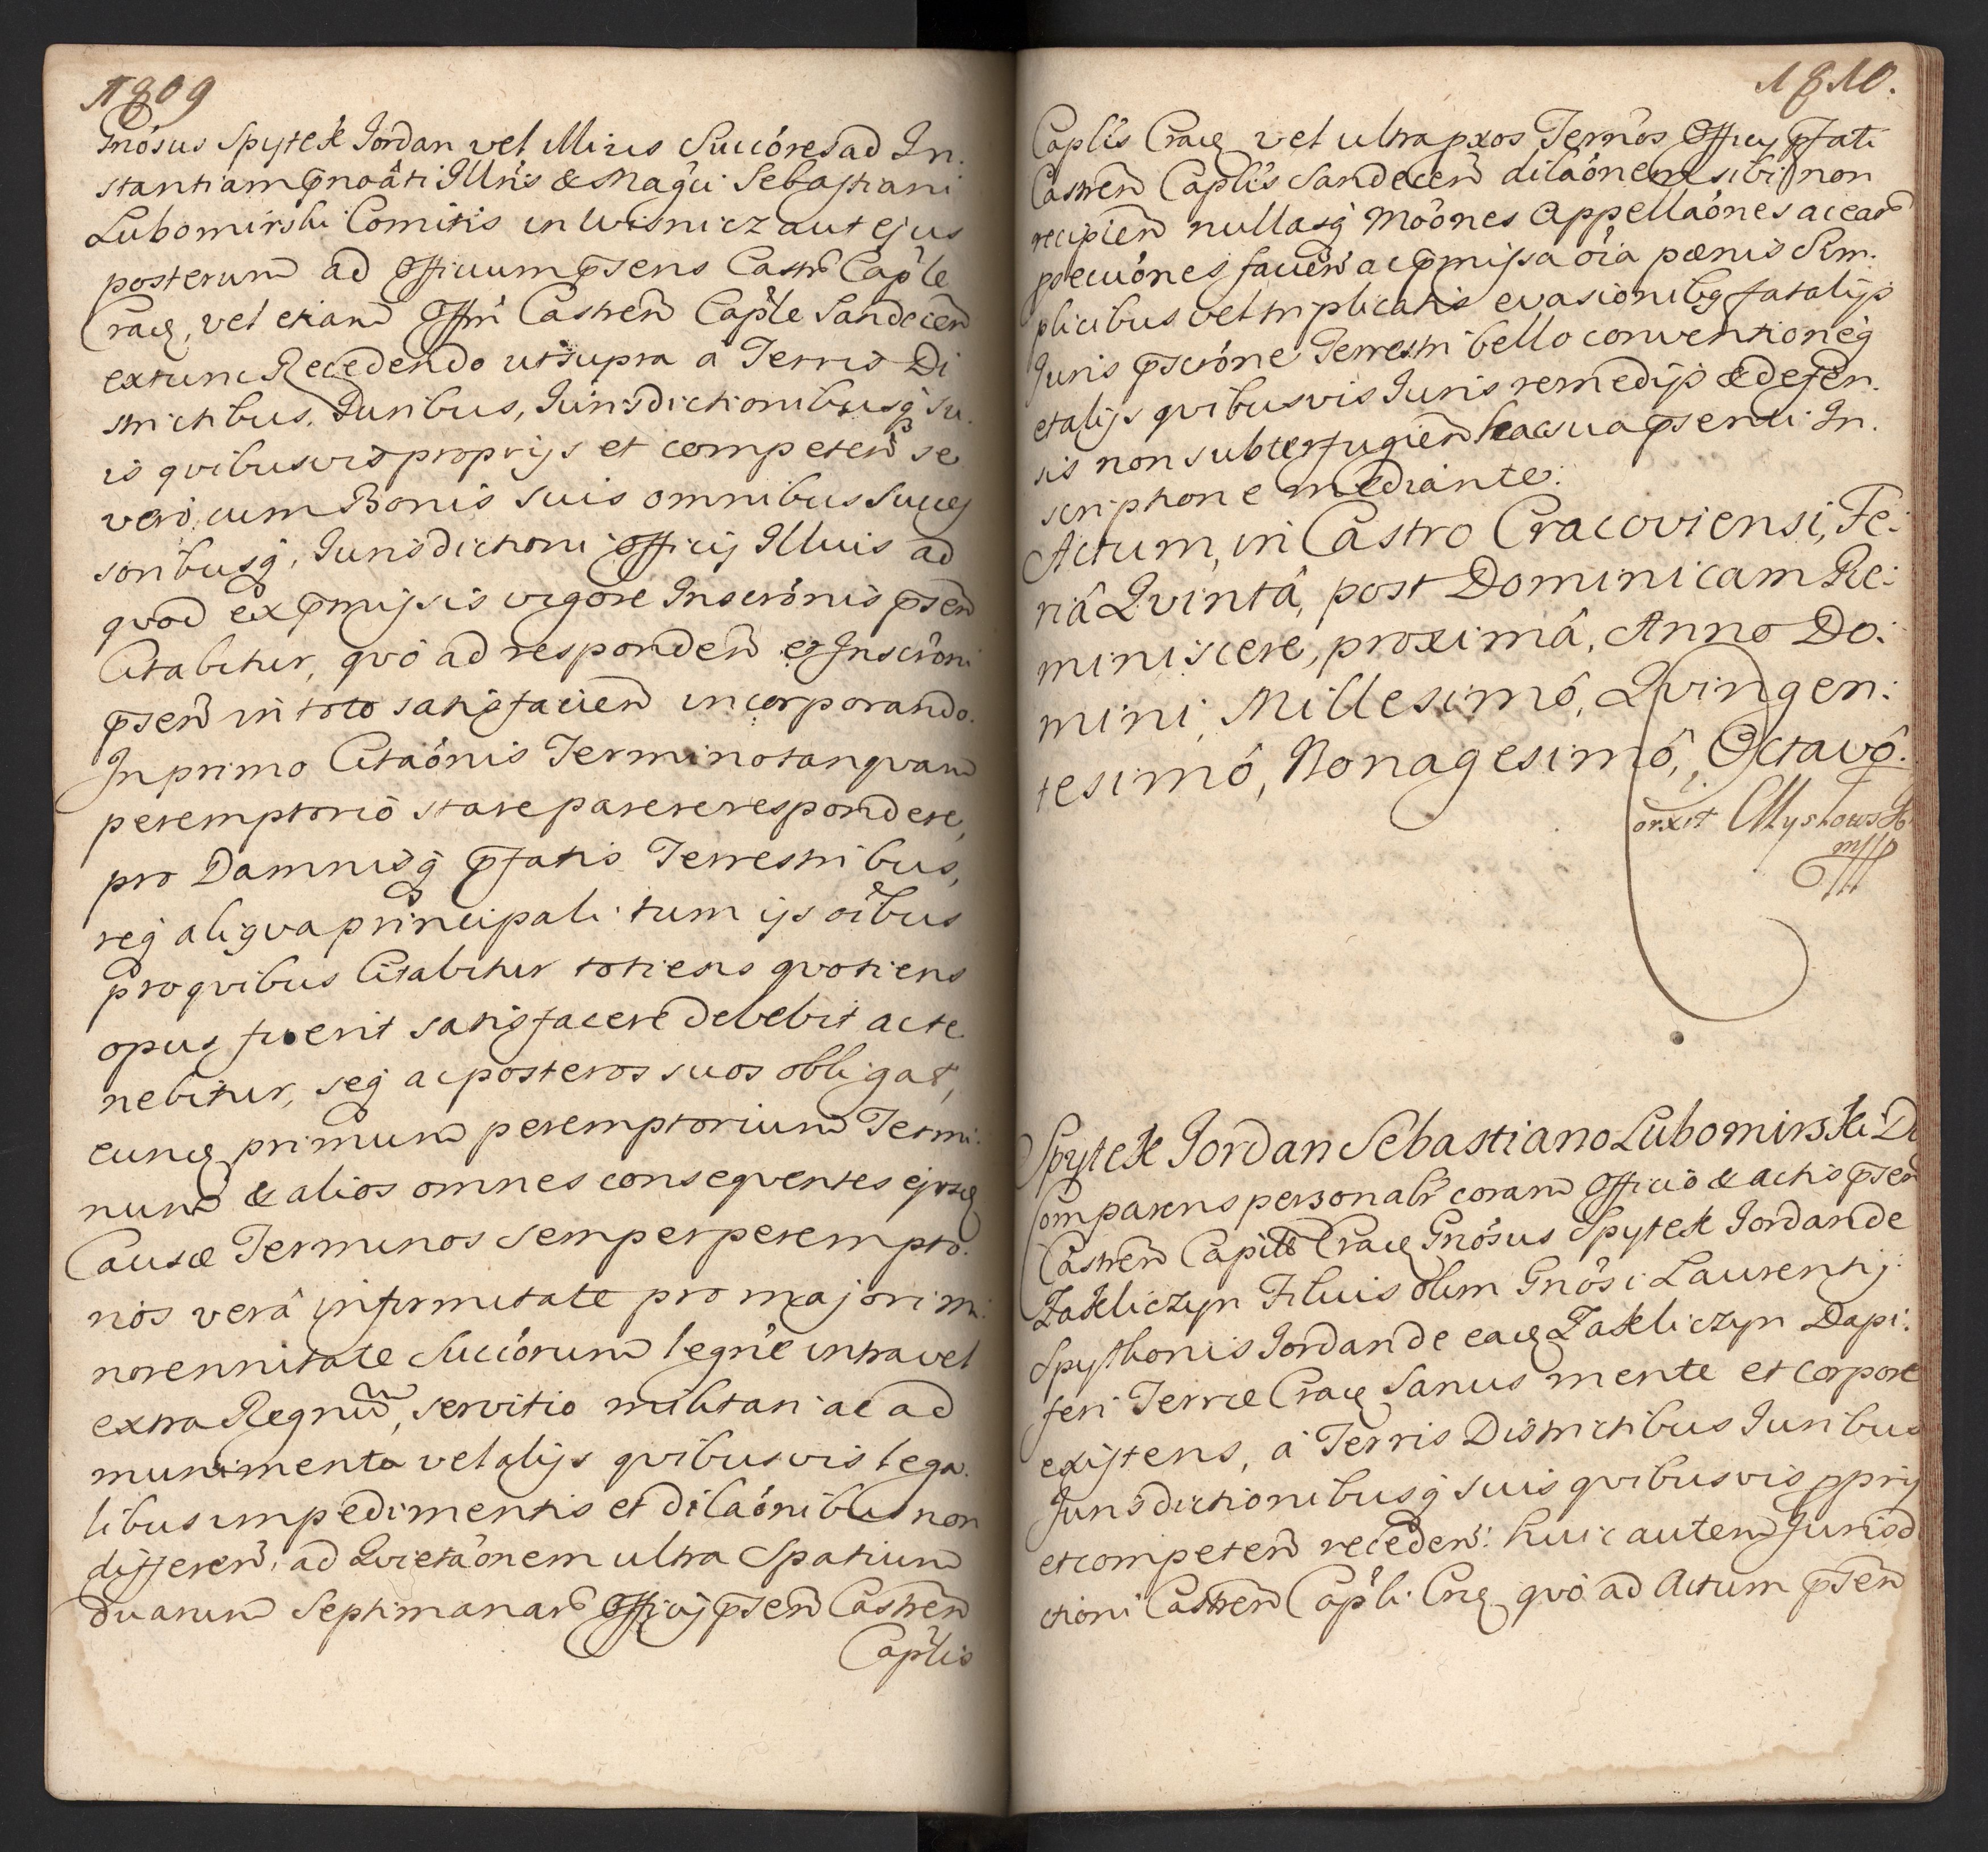 1809
Gnósus Spytek Jordan vel Illius Succóres ad In.
stantiam p̄noâti Illris & Mag̃ci Sebastiani
Lubomirski Comitis in Wisnicz aut ejus
posterum ad Officium p̄sens Castr̃ Capl̃e
Crac̨, vel etiam Offm̃ Castreñ Capl̃e Sandeceñ
extunc Recedendo ut supra â Terris Di
strictibus, Juribus, Jurisdictionibusq̨ su.
is qvibusvis proprijs et competeñ se
verò cum Bonis suis omnibus Succes
soribusq̨, Jurisdictioni Officij Illius ad
qvod ex p̄missis vigore Inscrónis p̄señ
Citabitur, qvó ad respondeñ et Inscróni
p̄señ in toto satisfacieñ incorporando.
In primo Citaónis Termino tanqvam
peremptorió stare parere respondere,
pro Damnisq̨ p̄fatis Terrestribus,
req̨ aliqva principali tum ijs oîbus
pro qvibus Citabitur totiens qvotiens
opus fuerit satisfacere debebit ac te
nebitur, seq̨ ac posteros suos obligat,
eunq̨ primum peremptorium Termi.
num & alios omnes conseqventes ejusq̨
Causæ Terminos semper perempto.
rios verâ infirmitate pro majori mi:
norennitate Succórum legr̃e intra vel
extra Regnũ, servitio militari ac ad
munimenta vel alijs qvibusvis lega.
libus impedimentis et dilaónibus non
differeñ, ad Qvietaónem ultra Spatium
duarum Septimanar̃ Officij p̄señ Castreñ
Capl̃is
1810.
Capl̃is Crac̨ vel ultra pxos Term̃os Officij p̄fati
Castreñ Capl̃is Sandeceñ dilaónem sibi non
recipieñ nullasq̨ Moónes Appellaónes ac ear̃
psecuónes facieñ ac p̄missa oîa pœnis Sim.
plicibus vel triplicatis evasionibq̨ fatalijs
Juris p̄scróne Terrestri bello conventioneq̨
et alijs qvibusvis Juris remedijs & defen.
sis non subterfugieñ hac sua p̄senti In.
scriptione mediante.
Actum, in Castro Cracoviensi, Fe:
riâ Qvintâ, post Dominicam Re:
miniscere, proximâ, Anno Do:
mini, Millesimô, Qvingen:
tesimô, Nonagesimô, Octavô.
orxit Myskowski
mpp
Spytek Jordan Sebastiano Lubomirski D
Comparens personalr̃ coram Offició & actis p̄señ
Castreñ Capitl̃ Crac̨ Gnósus Spytek Jordan de
Zakliczyn Filius olim Gnósi Laurentij:
Spythonis Jordan de eac̨ Zakliczyn Dapi:
feri Terræ Crac̨ Sanus mente et corpore
existens, â Terris Districtibus Juribus
Jurisdictionibusq̨ suis qvibusvis pprij
et competeñ recedeñ: huic autem Jurisd
ctioni Castreñ Capl̃i Crac̨ qvó ad Actum p̄señ